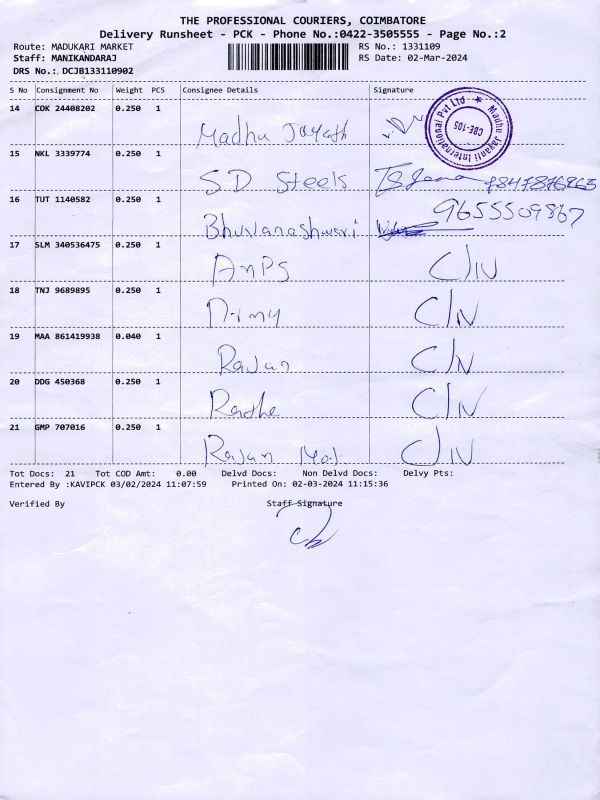 THE PROFESSIONAL COURIERS, COIMBATORE
Delivery Runsheet - PCK - Phone No.:0422-3505555 - Page No.:2
Route: MADUKARI MARKET RS No.: 1331109
Staff: MANIKANDARAJ RS Date: 02-Mar-2024
DRS No.: DCJB133110902
S No Consignment No Weight PCS Consignee Details Signature
14 COK 24408202 0.250 1
Madhu Jayath
Madhu Jayanti International Pvt Ltd ★
CBE-105
15 NKL 3339774 0.250 1
SD Steels
16 TUT 1140582 0.250 1 9655509867
Bhuvanashwari
17 SLM 340536475 0.250 1
AMPS C/N
18 TNJ 9689895 0.250 1
C/N
19 MAA 861419938 0.040 1
Rajan C/N
20 DDG 450368 0.250 1
Radhe C/N
21 GMP 707016 0.250 1
Rajan C/N
Tot Docs: 21 Tot COD Amt: 0.00 Delvd Docs: Non Delvd Docs: Delvy Pts:
Entered By :KAVIPCK 03/02/2024 11:07:59 Printed On: 02-03-2024 11:15:36
Verified By Staff Signature